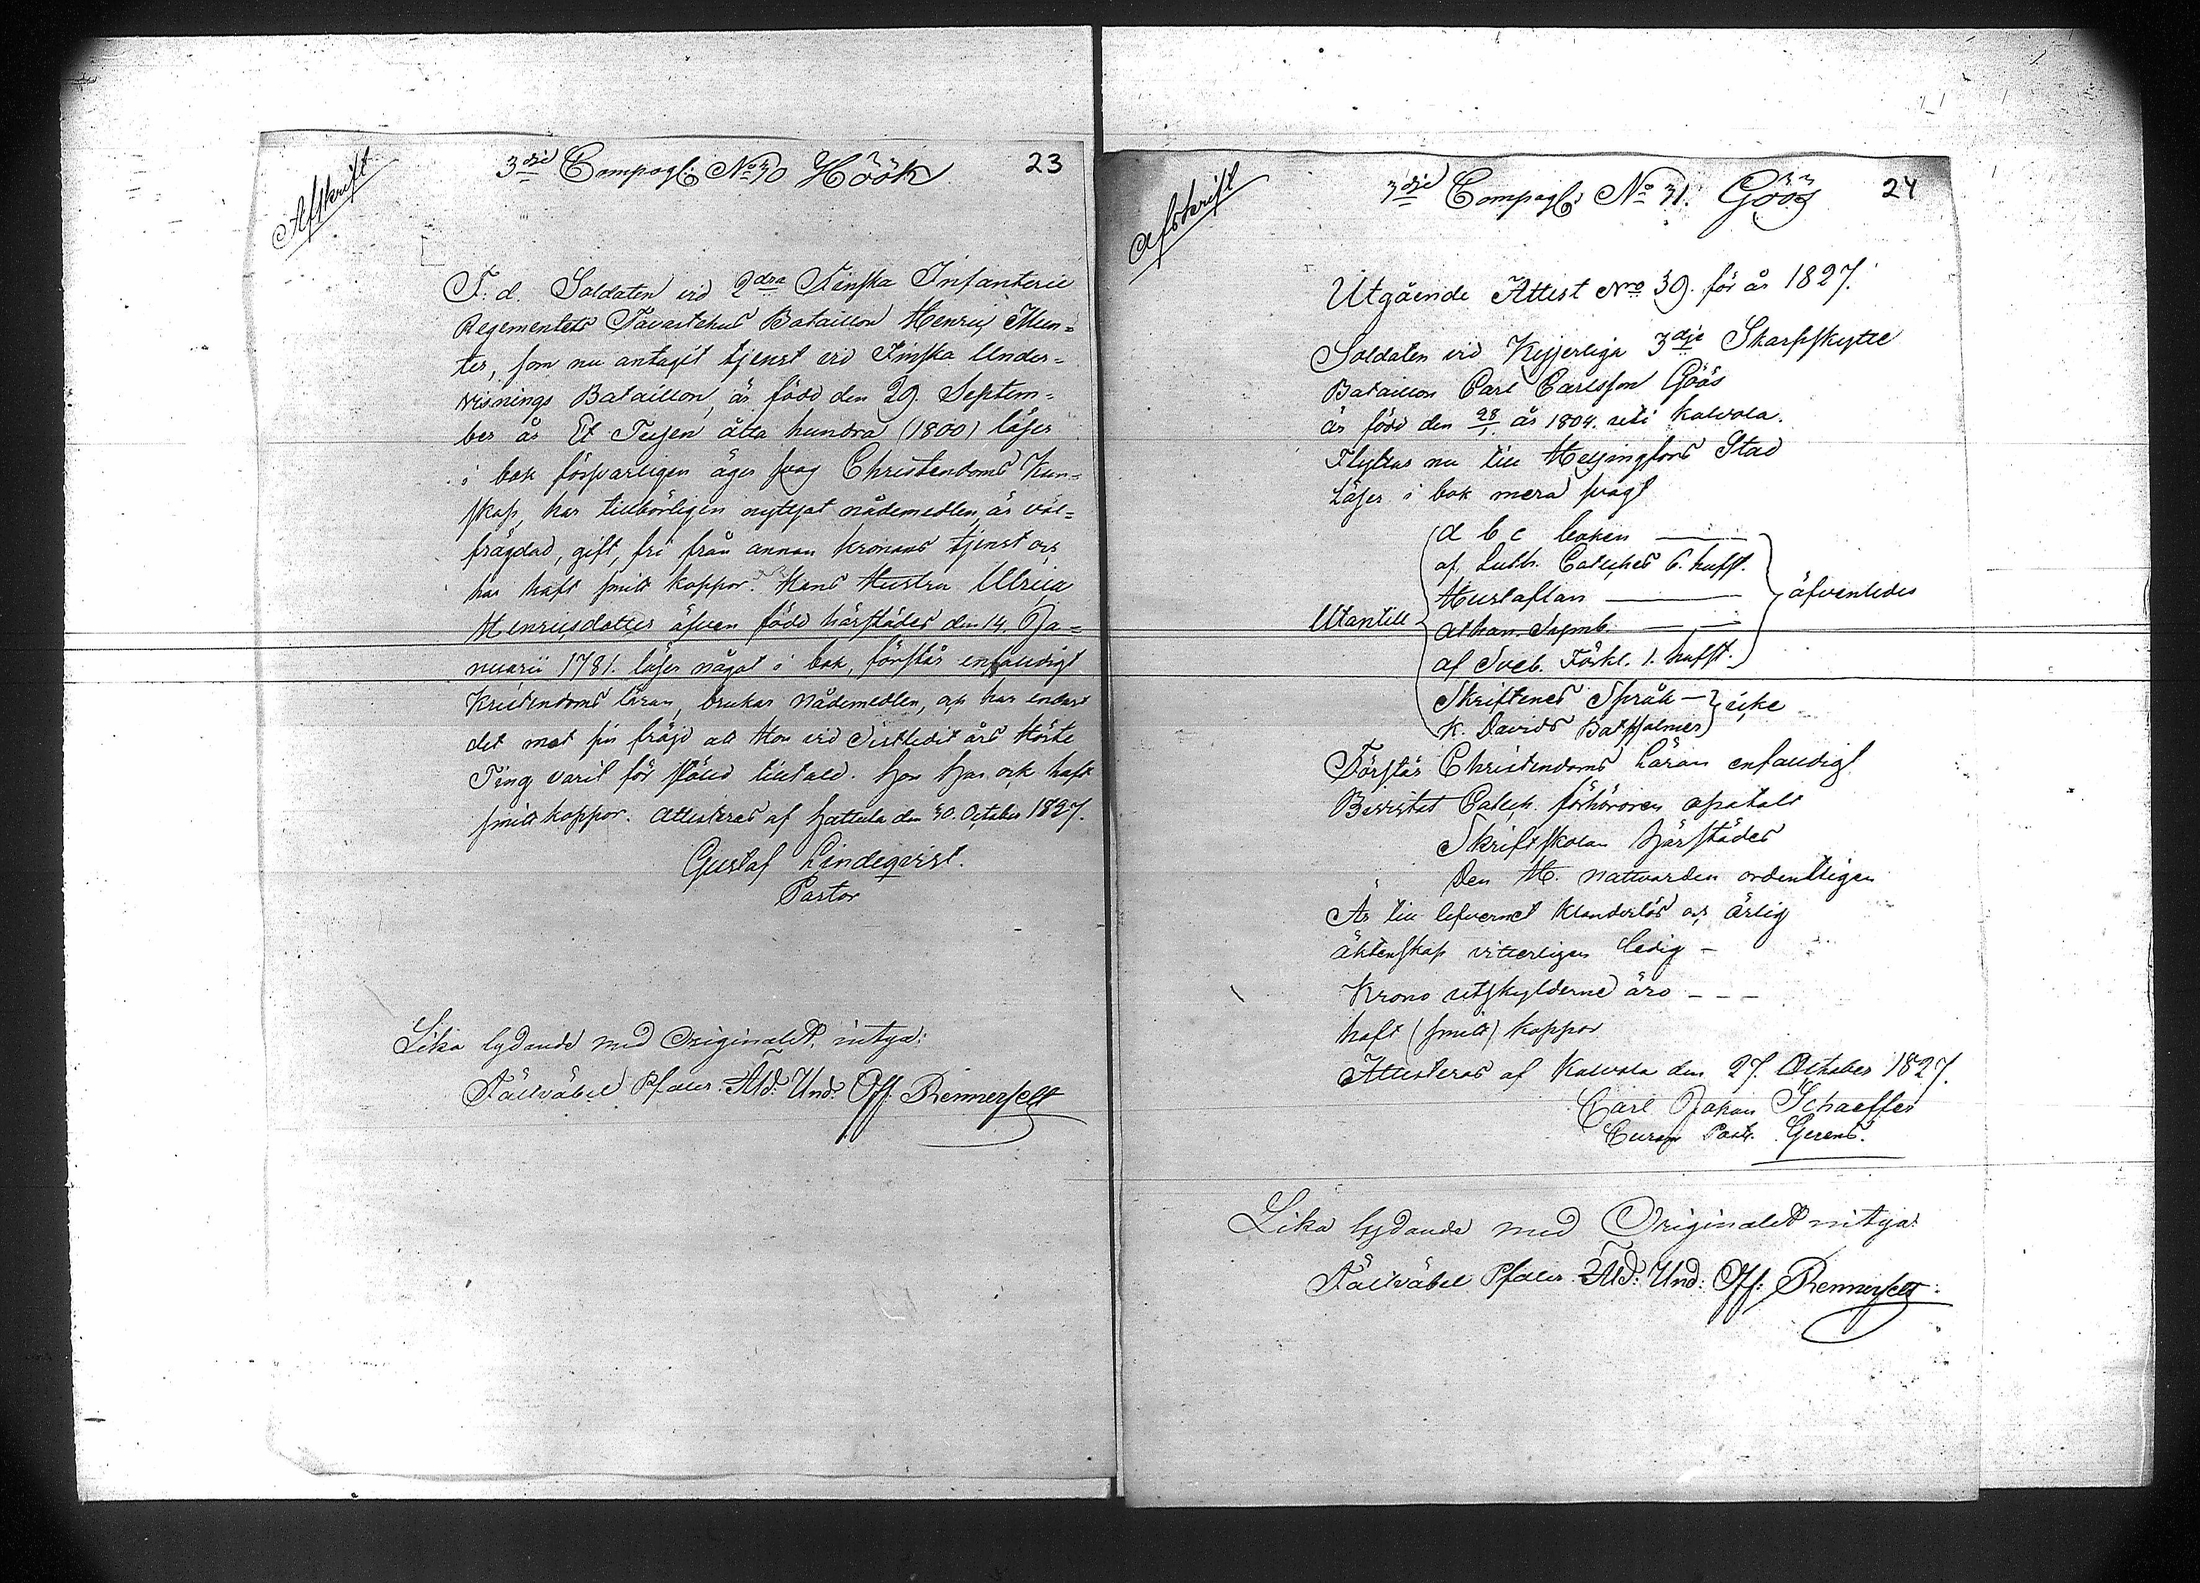 Afskrift
3dje Compagt: No 30 Höök
23
F. d. Soldaten vid 2dra Finska Infanterie
Regementets Tavastehus Bataillon Henric Mun-
ter, som nu antagit tjenst vid Finska Under-
visnings Bataillon, är född den 29. Septem-
ber år Et Tusen åtta hundra (1800) läser
i bok försvarligen äger svag Christendoms Kun-
skap, har tillbörligen nyttjat nådemedlen, är väl-
frägdad, gift, fri från annan Kronans tjenst och
har haft smitt koppor. Hans Hustru Ulrica
Henricsdotter äfven född härstädes den 14. Ja-
nuarii 1781. läser något i bok, förstår enfaldigt
Kristendoms läran, brukar Nådemedlen, och har endast
det mot sin fräjd att Hon vid sistledit års Höste
Ting varit för stöld tilltald. Hon har ock haft
smitt koppor. Attesteras af Hattula den 30. October 1827.
Gustaf Lindeqvist.
Pastor
Lika lydande med Originalet, intyga:
Fältväbel Pfaler. Und: Off. Rennerfelt
Afskrift
3dje Compagt: No 31. Göös
24
Utgående Attest Nro 39. för år 1827.
Soldaten vid Kejserliga 3dje Skarpskytte
Bataillon Carl Carlsson Göös
är född den 28/1. år 1804. uti Kalvola.
Flyttas nu till Helsingfors Stad
Läser i bok mera svagt
Utantill
a b c boken
af Luth. Cateches 6. hufst.
Hustaflan
Athan. Symb.
af Sveb. Förkl. 1. hufst.
äfvenledes
Skriftenes Språk
K. Davids Botpsalmer
icke
Förstår Christendoms Läran enfaldigt
Bevistat Catech. förhören
Skriftskolan härstädes
Den H. nattvarden ordentligen
Är till lefvernet Klanderlös och ärlig
äktenskap vitterligen ledig -
Krono utskylderne äro - - -
haft (smitt) koppor
Attesteras af Kalvola den 27. October 1827.
Carl Johan Schaeffer
Curam Past. Gerens.
Lika lydande med Originalet intyga:
Fältväbel Pfaler. Und: Off: Rennerfelt: